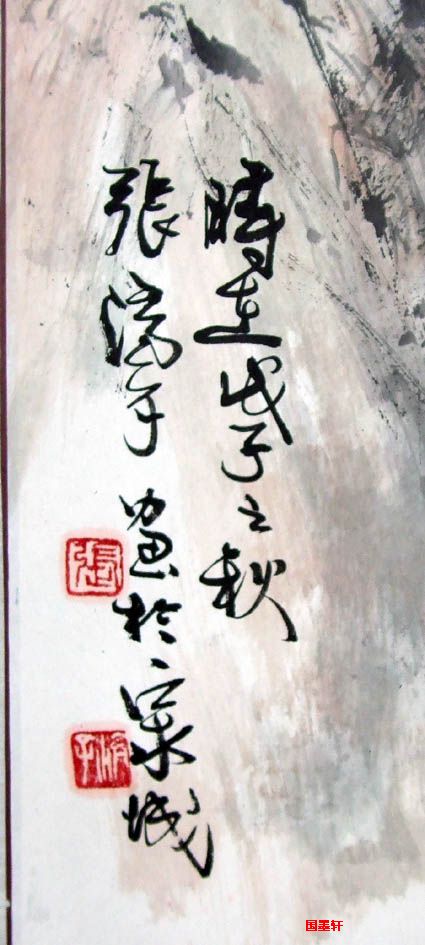 時在戊子之秋
張畫於宋城
張
国墨轩